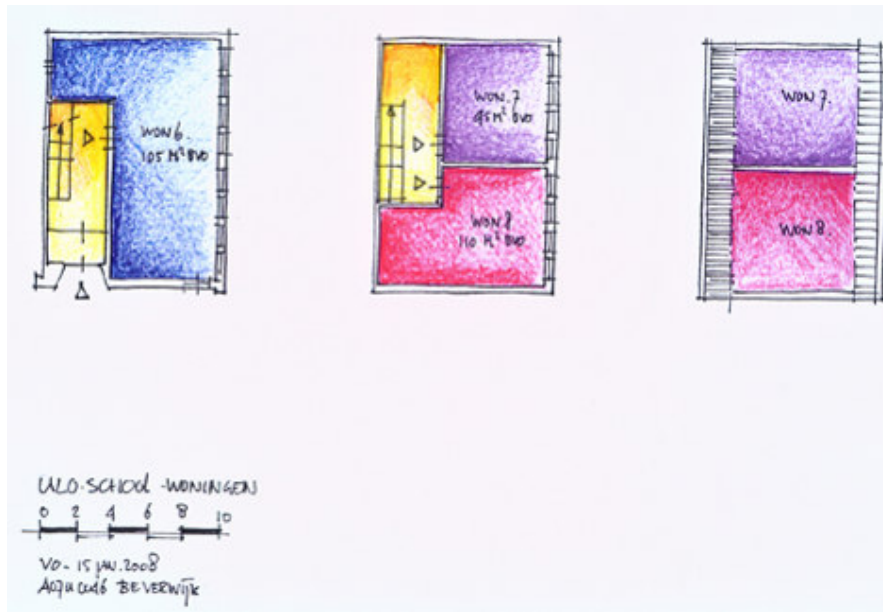 WON 6.
105 M² BVO
WON. 7
95 M² BVO
WON 8
110 M² BVO
WON 7.
WON 8.
ULO-SCHOOL-WONINGEN
0 2 4 6 8 10
VO - 15 JAN. 2008
BEVERWIJK